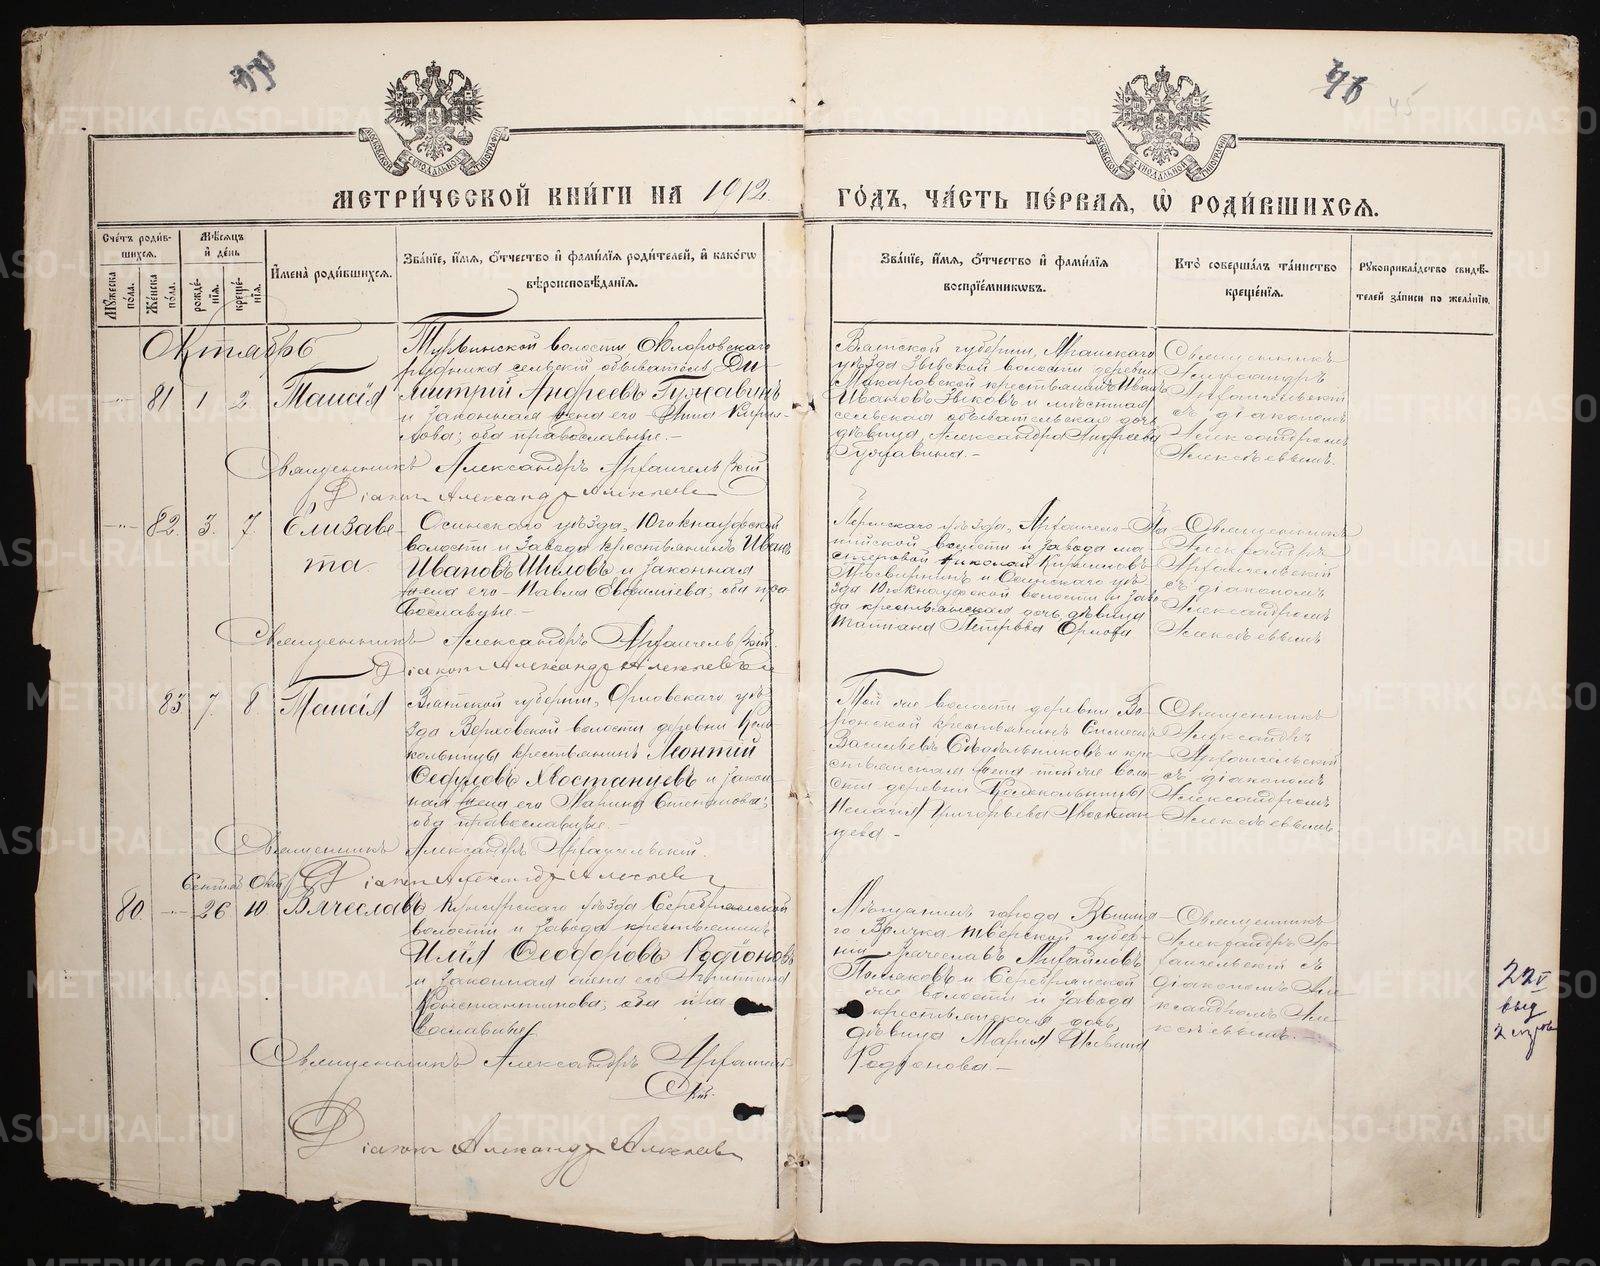 МЕТРИ́ЧЕСКОЙ КНИ́ГИ НА 1912 ГО́ДЪ, ЧА́СТЬ ПЕ́РВАЯ, Ѡ҆ РОДИ́ВШИХСЯ.
Сче́тъ роди́в-
шихся.
Мꙋ́жеска по́ла.
Же́нска по́ла.
Мѣ́сяцъ и҆ де́нь
рожде́-
нїя.
креще́-
нїя.
И҆мена̀ роди́вшихся.
Зва́нїе, и҆́мя, ѻ҆́тчество и҆ фами́лїя роди́телей, и҆ како́гѡ
вѣроисповѣ́данїя.
Зва́нїе, и҆́мя, ѻ҆́тчество и҆ фами́лїя
воспрїе́мниковъ.
Кто̀ соверша́лъ та́инство
креще́нїя.
Рꙋкоприкла́дство свидѣ́-
телей за́писи по жела́нїю.
Октябрь
81 1 2 Таисія
волости
рудника сельскій обыватель Ди-
митрій Андреевъ Гужавинъ
и законная жена его Анна Кирил-
лова; оба православные.-
Вятской губерніи,
уѣзда волости деревни
Макаровской крестьянинъ Иванъ
Ивановъ и мѣстная
сельская обывательская дочь
дѣвица Александра Андреева
Гужавина.-
Священникъ
Александръ
Архангельскій
съ діакономъ
Александромъ
Алексѣевымъ.
Священникъ Александръ Архангельскій
Діаконъ Александръ Алексѣевъ
82 3. 7. Елизаве-
та
Осинскаго уѣзда, Юго Кнауфской
волости и завода крестьянинъ Иванъ
Ивановъ Шиловъ и законная
жена его Павла Евфиміева; оба пра-
вославные.-
Пермскаго уѣзда, Архангело-Па-
шійской волости и завода ма-
стеровой Николай Кирилловъ
Просвирнинъ и Осинскаго уѣ-
зда Юго Кнауфской волости и заво-
да крестьянская дочь дѣвица
Татіана Петрова Орлова
Священникъ
Александръ
Архангельскій
съ діакономъ
Александромъ
Алексѣевымъ
Священникъ Александръ Архангельскій.
Діаконъ Александръ Алексѣевъ
83 7. 8 Таисія
Вятской губерніи, Орловскаго уѣ-
зда Верховской волости деревни Коло-
кольницы крестьянинъ Леонтій
Ѳедуловъ Хвостанцевъ и закон-
ная жена его Марина Степанова;
оба православные.-
Той же волости деревни Во-
ронской крестьянинъ Симеонъ
Васильевъ и кре-
стьянская жена той же воло-
сти деревни Колокольницы
Григорьева Хвостан-
цева -
Священникъ
Александръ
Архангельскій
съ діакономъ
Александромъ
Алексѣевымъ
Священникъ Александръ Архангельскій.
Діаконъ Александръ Алексѣевъ
Сентяб Окт
80 26 10 Вячеславъ
Кунгурскаго уѣзда Серебрянской
волости и завода крестьянинъ
Илія Ѳеодоровъ Родіоновъ
и законная жена его
Константинова; оба пра-
вославные
Мѣщанинъ города Вышня-
го Волчка Тверской губер-
ніи Вячеславъ Михайловъ
и Серебрянской
же волости и завода
крестьянская дочь,
дѣвица Марія Ильина
Родіонова.-
Священникъ
Александръ Ар-
хангельскій съ
діакономъ Але-
ксандромъ Але-
ксѣевымъ.-
Священникъ Александръ Архангель
скій.
Діаконъ Александръ Алексѣевъ
METRIKI.GASO-URAL.RU